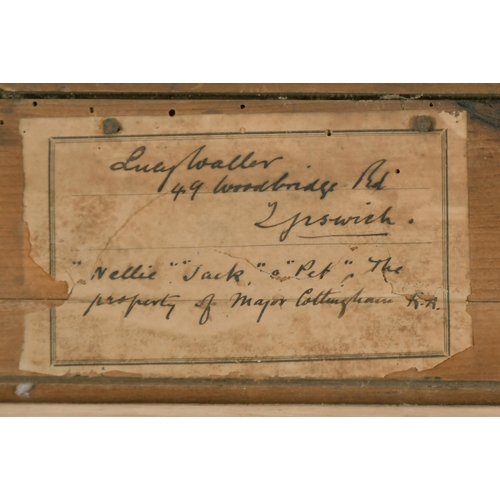 Lucy Waller
49 Woodbridge Rd
Ipswich.
"Nellie" "Jack," & "Pet", The
property of Major Cottingham R.A.